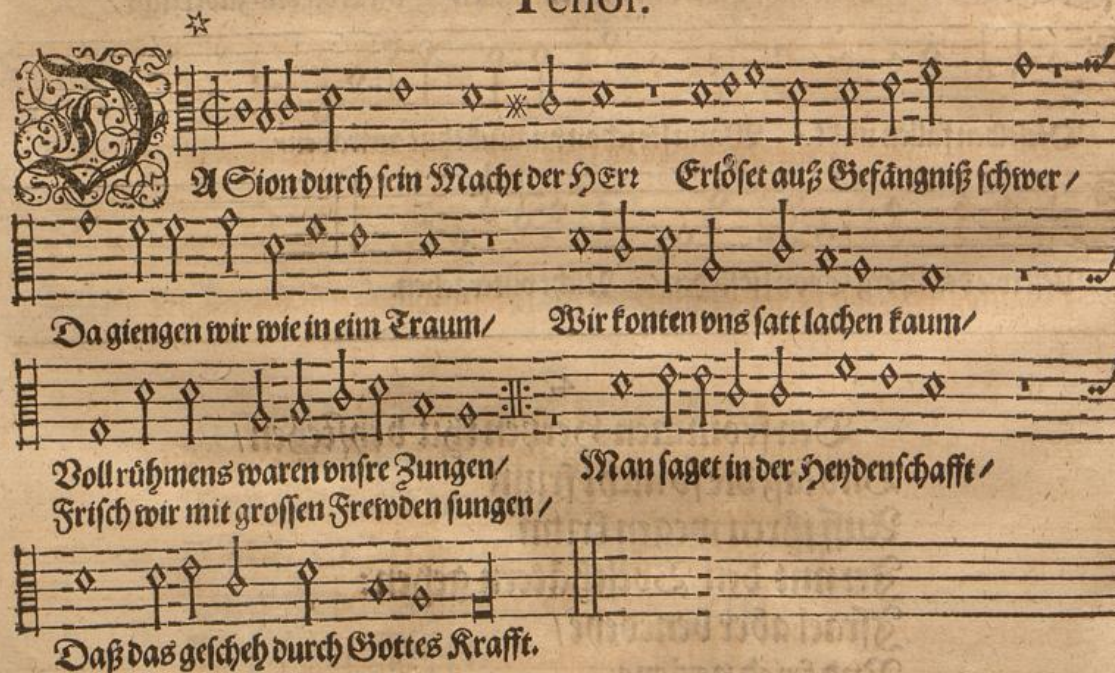 Tenor.
DA Sion durch sein Macht der HErr Erlöset auß Gefängniß schwer /
Da giengen wir wie in eim Traum / Wir konten vns satt lachen kaum /
Voll rühmens waren vnsre Zungen / Man saget in der Heydenschafft /
Frisch wir mit grossen Frewden sungen /
Daß das gescheh durch Gottes Krafft.